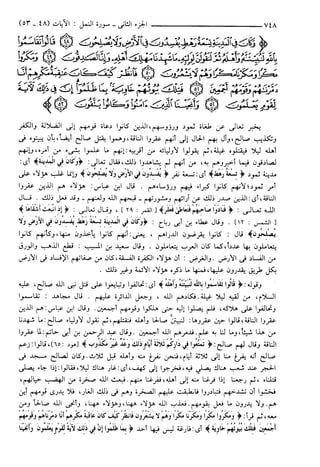 ٧٤٨ ــــــ الجزء الثاني ـ سورة النمل : الآيات (٤٨ ـ ٥٣)
يخبر تعالى عن طغاة ثمود ورؤوسهم، الذين كانوا دعاة قومهم إلى الضلالة والكفر
وتكذيب صالح، وآل بهم الحال إلى أنهم عقروا الناقة، وهموا بقتل صالح أيضاً، بأن يبيتوه في
أهله ليلاً فيقتلوه غيلة، ثم يقولوا لأوليائه من أقربيه: إنهم ما علموا بشيء من أمره، وإنهم
لصادقون فيما أخبروهم به، من أنهم لم يشاهدوا ذلك، فقال تعالى: ﴿وكان في المدينة﴾ أي:
مدينة ثمود ﴿تسعة رهط﴾ أي: تسعة نفر ﴿يفسدون في الأرض ولا يصلحون﴾ وإنما غلب هؤلاء على
أمر ثمود؛ لأنهم كانوا كبراء فيهم ورؤساءهم. قال ابن عباس: هؤلاء هم الذين عقروا
الناقة، أي: الذين صدر ذلك عن آرائهم ومشورتهم ـ قبحهم الله ولعنهم ـ وقد فعل ذلك. قال
الله تعالى: ﴿فنادوا صاحبهم فتعاطى فعقر﴾ [القمر : ٢٩]، وقال تعالى: ﴿إذ انبعث أشقاها﴾
[الشمس : ١٢]. وقال عطاء بن أبي رباح : ﴿وكان في المدينة تسعة رهط يفسدون في الأرض ولا
يصلحون﴾ قال: كانوا يقرضون الدراهم، يعني: أنهم كانوا يأخذون منها، وكأنهم كانوا
يتعاملون بها عدداً، كما كان العرب يتعاملون. وقال سعيد بن المسيب : قطع الذهب والورق
من الفساد في الأرض. والغرض: أن هؤلاء الكفرة الفسقة، كان من صفاتهم الإفساد في الأرض
بكل طريق يقدرون عليها، فمنها ما ذكره هؤلاء الأئمة وغير ذلك.
وقوله: ﴿قالوا تقاسموا بالله لنبيتنه وأهله﴾ أي: تحالفوا وتبايعوا على قتل نبي الله صالح، عليه
السلام، من لقيه ليلاً غيلة. فكادهم الله، وجعل الدائرة عليهم. قال مجاهد: تقاسموا
وتحالفوا على هلاكه، فلم يصلوا إليه حتى هلكوا وقومهم أجمعين. وقال ابن عباس: هم الذين
عقروا الناقة، قالوا حين عقروها: لنبيتن صالحاً وأهله فنقتلهم، ثم نقول لأولياء صالح: ما شهدنا
من هذا شيئاً، وما لنا به علم. فدمرهم الله أجمعين. وقال عبد الرحمن بن أبي حاتم: لما عقروا
الناقة وقال لهم صالح: ﴿تمتعوا في داركم ثلاثة أيام ذلك وعد غير مكذوب﴾ [هود: ٦٥]، قالوا: زعم
صالح أنه يفرغ منا إلى ثلاثة أيام، فنحن نفرغ منه وأهله قبل ثلاث. وكان لصالح مسجد في
الحجر عند شعب هناك يصلي فيه، فخرجوا إلى كهف، أي: غار هناك ليلاً، فقالوا: إذا جاء يصلي
قتلناه، ثم رجعنا إذا فرغنا منه إلى أهله، ففرغنا منهم. فبعث الله صخرة من الهضب حيالهم،
فخشوا أن تشدخهم فتبادروا فانطبقت عليهم الصخرة وهم في ذلك الغار، فلا يدري قومهم أين
هم، ولا يدرون ما فعل بقومهم. فعذب الله هؤلاء هاهنا، وهؤلاء هاهنا، وأنجى الله صالحاً ومن
معه، ثم قرأ: ﴿ومكروا مكراً ومكرنا مكراً وهم لا يشعرون فانظر كيف كان عاقبة مكرهم أنا دمرناهم وقومهم
أجمعين فتلك بيوتهم خاوية﴾ أي: فارغة ليس فيها أحد ﴿بما ظلموا إن في ذلك لآية لقوم يعلمون وأنجينا